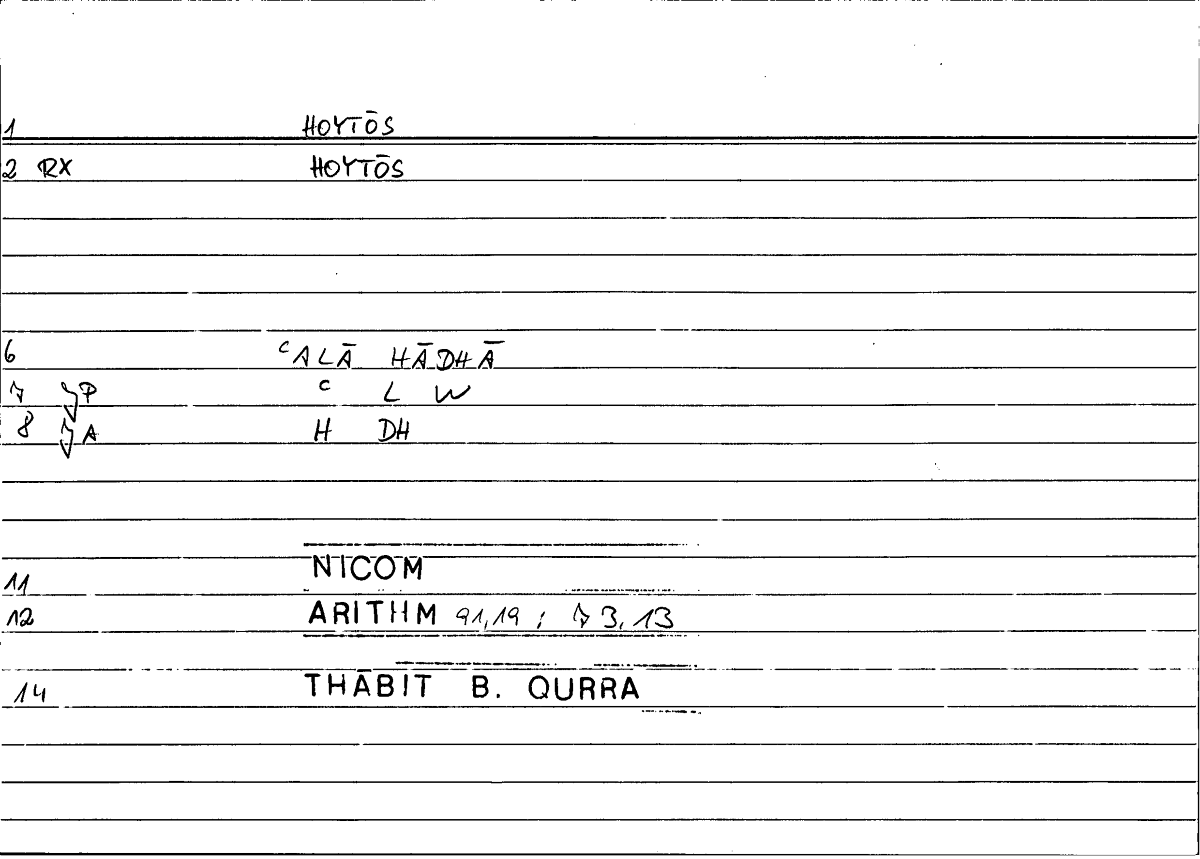 1 HOYTŌS
2 RX HOYTŌS
6 ᶜALĀ HĀDHĀ
7 ʒP ᶜ L W
8 ʒA H DH
11 NICOM
12 ARITHM 91,19 ; 73,13
14 THĀBIT B. QURRA